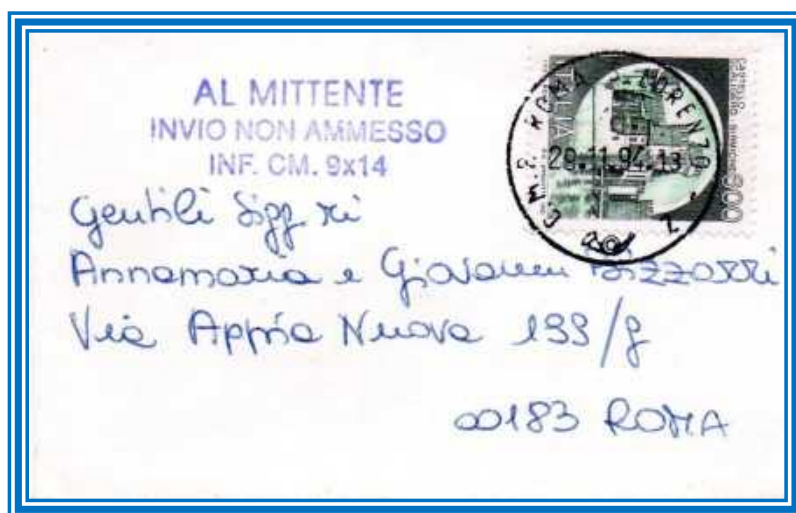 AL MITTENTE
INVIO NON AMMESSO
INF. CM. 9x14
C.M.P. ROMA S. LORENZO
29.11.94.13
CASTELLO
800
ITALIA
Gentili Sigg.ri
Annamaria e Giovanni Bizzarri
Via Appia Nuova 199/g
00183 ROMA